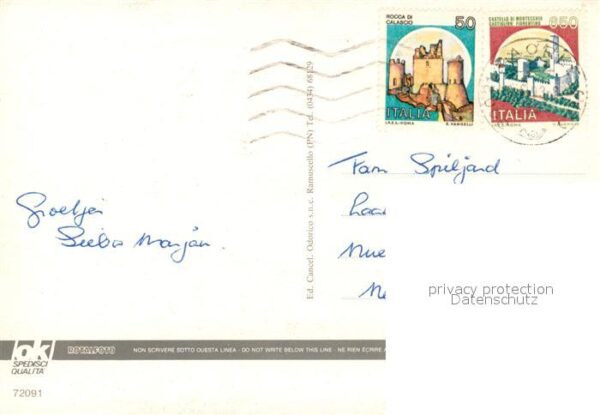 ROCCA DI
CALASCIO
50
ITALIA
I.P.Z.S.-ROMA E. VANGELLI
CASTELLO DI MONTECCHIO
CASTIGLION FIORENTINO
650
ITALIA
Ed. Cancel. Odorico s.n.c. Ramuscello (PN) Tel. (0434) 68129
Fam Spiljard
Groetjes
privacy protection
Datenschutz
ok
SPEDISCI
QUALITA'
ROTALFOTO
NON SCRIVERE SOTTO QUESTA LINEA - DO NOT WRITE BELOW THIS LINE - NE RIEN ÉCRIRE
72091